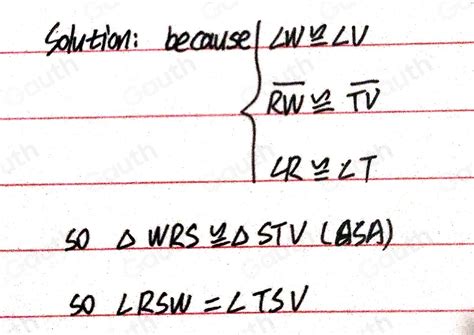 Solution: because { ∠W ≌ ∠V
R̅W̅ ≌ T̅V̅
∠R ≌ ∠T
so △ WRS ≌ △ STV (ASA)
so ∠RSW = ∠TSV